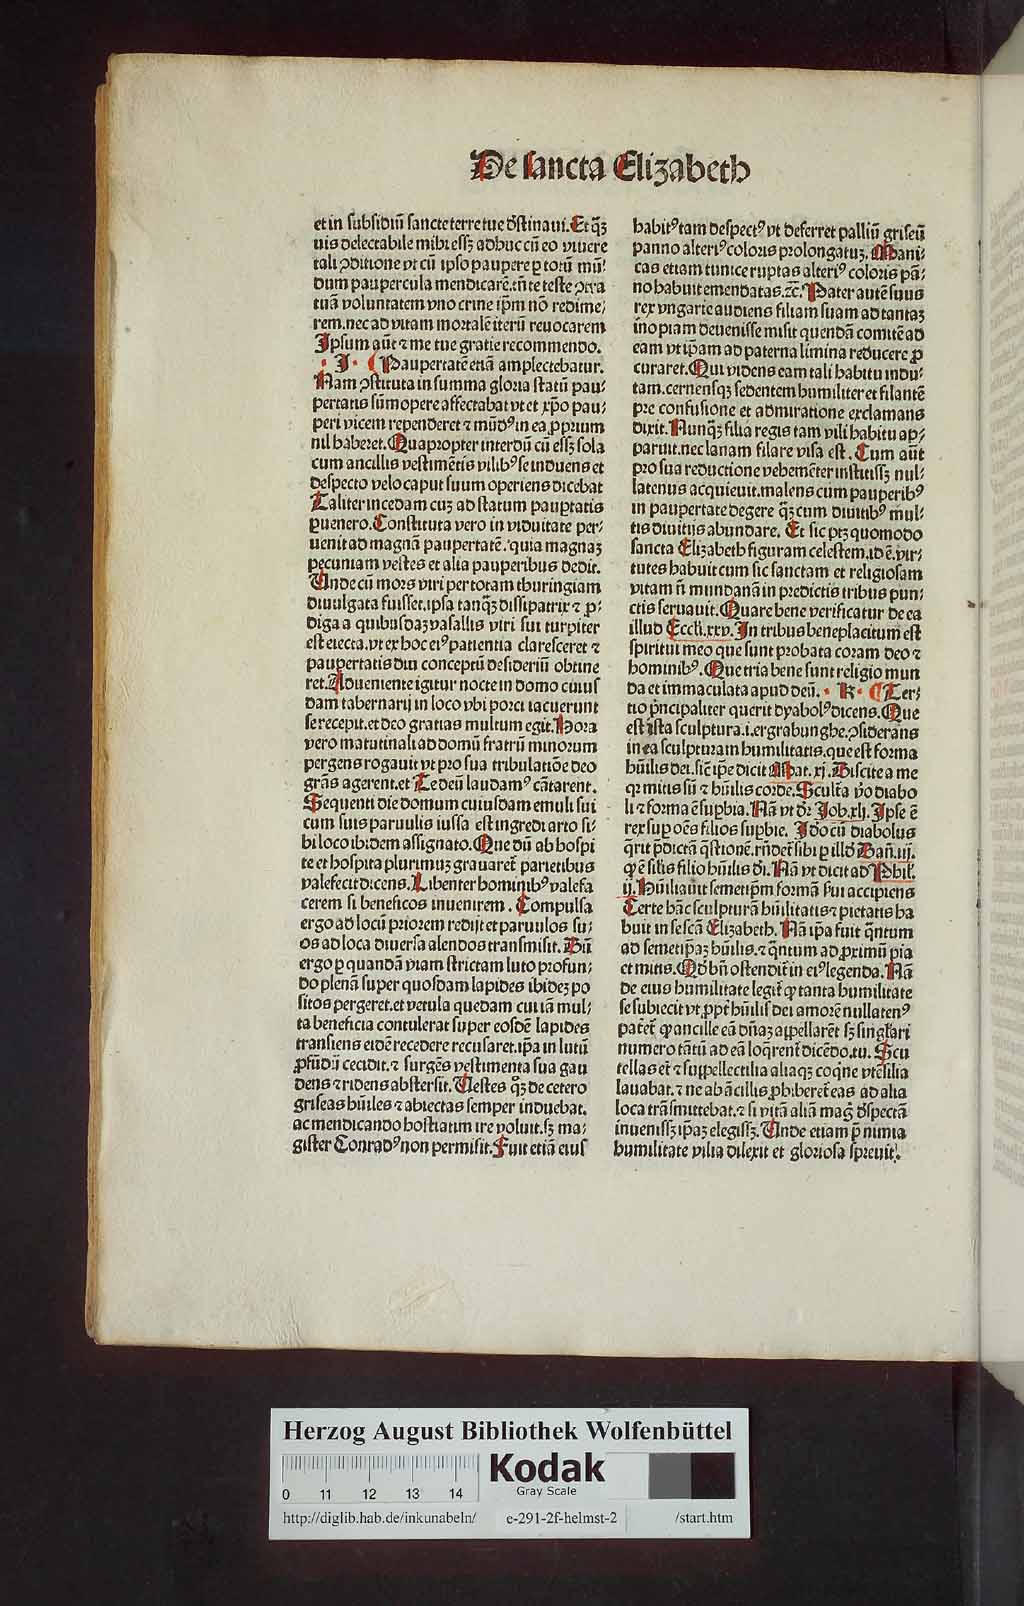 De sancta Elizabeth
et in subsidiū sancte terre tue dstinaui. Et q̄ꝫ
uis delectabile mihi essꝫ adhuc cū eo viuere
tali ꝯditione vt cū ipso paupere ꝑ totū mū⸗
dum paupercula mendicarē. tn̄ te teste ꝯtra
tuā voluntatem vno crine ip̄m nō redime⸗
rem. nec ad vitam mortalē iterū reuocarem
Ipsum aūt ⁊ me tue gratie recommendo.
· J · ¶ Paupertatē etiā amplectebatur.
Nam ꝯstituta in summa gloria statū pau⸗
pertatis sūmopere affectabat vt et xp̄o pau⸗
peri vicem rependeret ⁊ mūdꝰ in ea ꝓprium
nil haberet. Quapropter interdū cū essꝫ sola
cum ancillis vestimētis vilibꝰ se induens et
despecto velo caput suum operiens dicebat
Taliter incedam cuꝫ ad statum pauꝑtatis
ꝑuenero. Constituta vero in viduitate per⸗
uenit ad magnā paupertatē. quia magnaꝫ
pecuniam vestes et alia pauperibus dedit.
Unde cū mors viri per totam thuringiam
diuulgata fuisset. ipsa tanq̄ꝫ dissipatrix ⁊ ꝓ⸗
diga a quibusdaꝫ vasallis viri sui turpiter
est eiecta. vt ex hoc eiꝰ patientia claresceret ⁊
pauꝑtatis diu conceptū desideriū obtine
ret. Adueniente igitur nocte in domo cuius
dam tabernarij in loco vbi porci iacuerunt
se recepit. et deo gratias multum egit. Hora
vero matutinali ad domū fratrū minorum
pergens rogauit vt pro sua tribulatiōe deo
gr̄as agerent. et Te deū laudamꝰ cātarent.
Sequenti die domum cuiusdam emuli sui
cum suis paruulis iussa est ingredi arto si⸗
bi loco ibidem assignato. Que dū ab hospi
te et hospita plurimuꝫ grauaret᷑ parietibus
valefecit dicens. Libenter hominibꝰ valefa
cerem si beneficos inuenirem. Compulsa
ergo ad locū priorem redijt et paruulos su⸗
os ad loca diuersa alendos transmisit. Dū
ergo ꝑ quandā viam strictam luto profun⸗
do plenā super quosdam lapides ibideꝫ po
sitos pergeret. et vetula quedam cui iā mul⸗
ta beneficia contulerat super eosdē lapides
transiens eidē recedere recusaret. ip̄a in lutū
ꝓfūdū cecidit. ⁊ surgēs vestimenta sua gau
dens ⁊ ridens abstersit. Uestes q̄ꝫ de cetero
griseas hūiles ⁊ abiectas semper induebat.
ac mendicando hostiatim ire voluit. sꝫ ma⸗
gister Conradꝰ non permisit. Fuit etiā eius
habitꝰ tam despectꝰ vt deferret palliū griseū
panno alteriꝰ coloris prolongatuꝫ. Mani⸗
cas etiam tunice ruptas alteriꝰ coloris pā⸗
no habuit emendatas. ⁊c̄. Pater autē suus
rex vngarie audiens filiam suam ad tantaꝫ
inopiam deuenisse misit quendā comitē ad
eam vt ip̄am ad paterna limina reducere ꝓ
curaret. Qui videns eam tali habitu indu⸗
tam. cernensqꝫ sedentem humiliter et filantē
pre confusione et admiratione exclamans
dixit. Nunqꝫ filia regis tam vili habitu ap⸗
paruit. nec lanam filare visa est. Cum aūt
pro sua reductione vehemēter institissꝫ nul⸗
latenus acquieuit. malens cum pauperibꝰ
in paupertate degere q̄ꝫ cum diuitibꝰ mul⸗
tis diuitijs abundare. Et sic ptꝫ quomodo
sancta Elizabeth figuram celestem. id ē. vir⸗
tutes habuit cum sic sanctam et religiosam
vitam n̄ mundanā in predictis tribus pun⸗
ctis seruauit. Quare bene verificatur de ea
illud Eccli. xxv. In tribus beneplacitum est
spiritui meo que sunt probata coram deo ⁊
hominibꝰ. Que tria bene sunt religio mun
da et immaculata apud deū. · K · ¶ Ter⸗
tio pͥncipaliter querit dyabolꝰ dicens. Que
est ista sculptura. i. ergrabunghe. ꝯsiderans
in ea sculpturam humilitatis. que est forma
hūilis dei. sic ip̄e dicit Mat. xj. Discite a me
qꝛ mitis sū ⁊ hūilis corde. Sculta v̄o diabo
li ⁊ forma ē suꝑbia. Nā vt dr̄ Job. xlj. Ipse ē
rex suꝑ oēs filios suꝑbie. Jdo cū diabolus
qrit ꝑdictā q̄stionē. rn̄det᷑ sibi ꝑ illd Dan. iij.
qꝛ ē silis filio hūilis di. Nā vt dicit ad Phil.
ij. Hūiliauit semetip̄m formā sui accipiens
Certe hāc sculpturā hūilitatis ⁊ pietatis ha
buit in se scā Elizabeth. Nā ip̄a fuit qntum
ad semetip̄aꝫ hūilis. ⁊ qntum ad ꝓximū pia
et mitis. Qd bn̄ ostendit᷑ in eiꝰ legenda. Nā
de eius humilitate legit᷑ ꝙ tanta humilitate
se subiecit vt ꝓpt᷑ hūilis dei amorē nullatenꝰ
patet᷑ ꝙ ancille eā dn̄aꝫ appellarēt sꝫ singlari
numero tātū ad eā loq̄rent᷑ dicēdo. tu. Scu
tellas et᷑ ⁊ suppellectilia aliaqꝫ coqͥne vtēsilia
lauabat. ⁊ ne ab ācillis ꝓhiberet᷑ eas ad alia
loca trāsmittebat. ⁊ si vitā aliā mag᷑ dspectā
inuenissꝫ ip̄aꝫ elegissꝫ. Unde etiam p̄ nimia
humilitate vilia dilexit et gloriosa spreuit.
Herzog August Bibliothek Wolfenbüttel
Kodak
Gray Scale
0 11 12 13 14
http://diglib.hab.de/inkunabeln/ e-291-2f-helmst-2 /start.htm